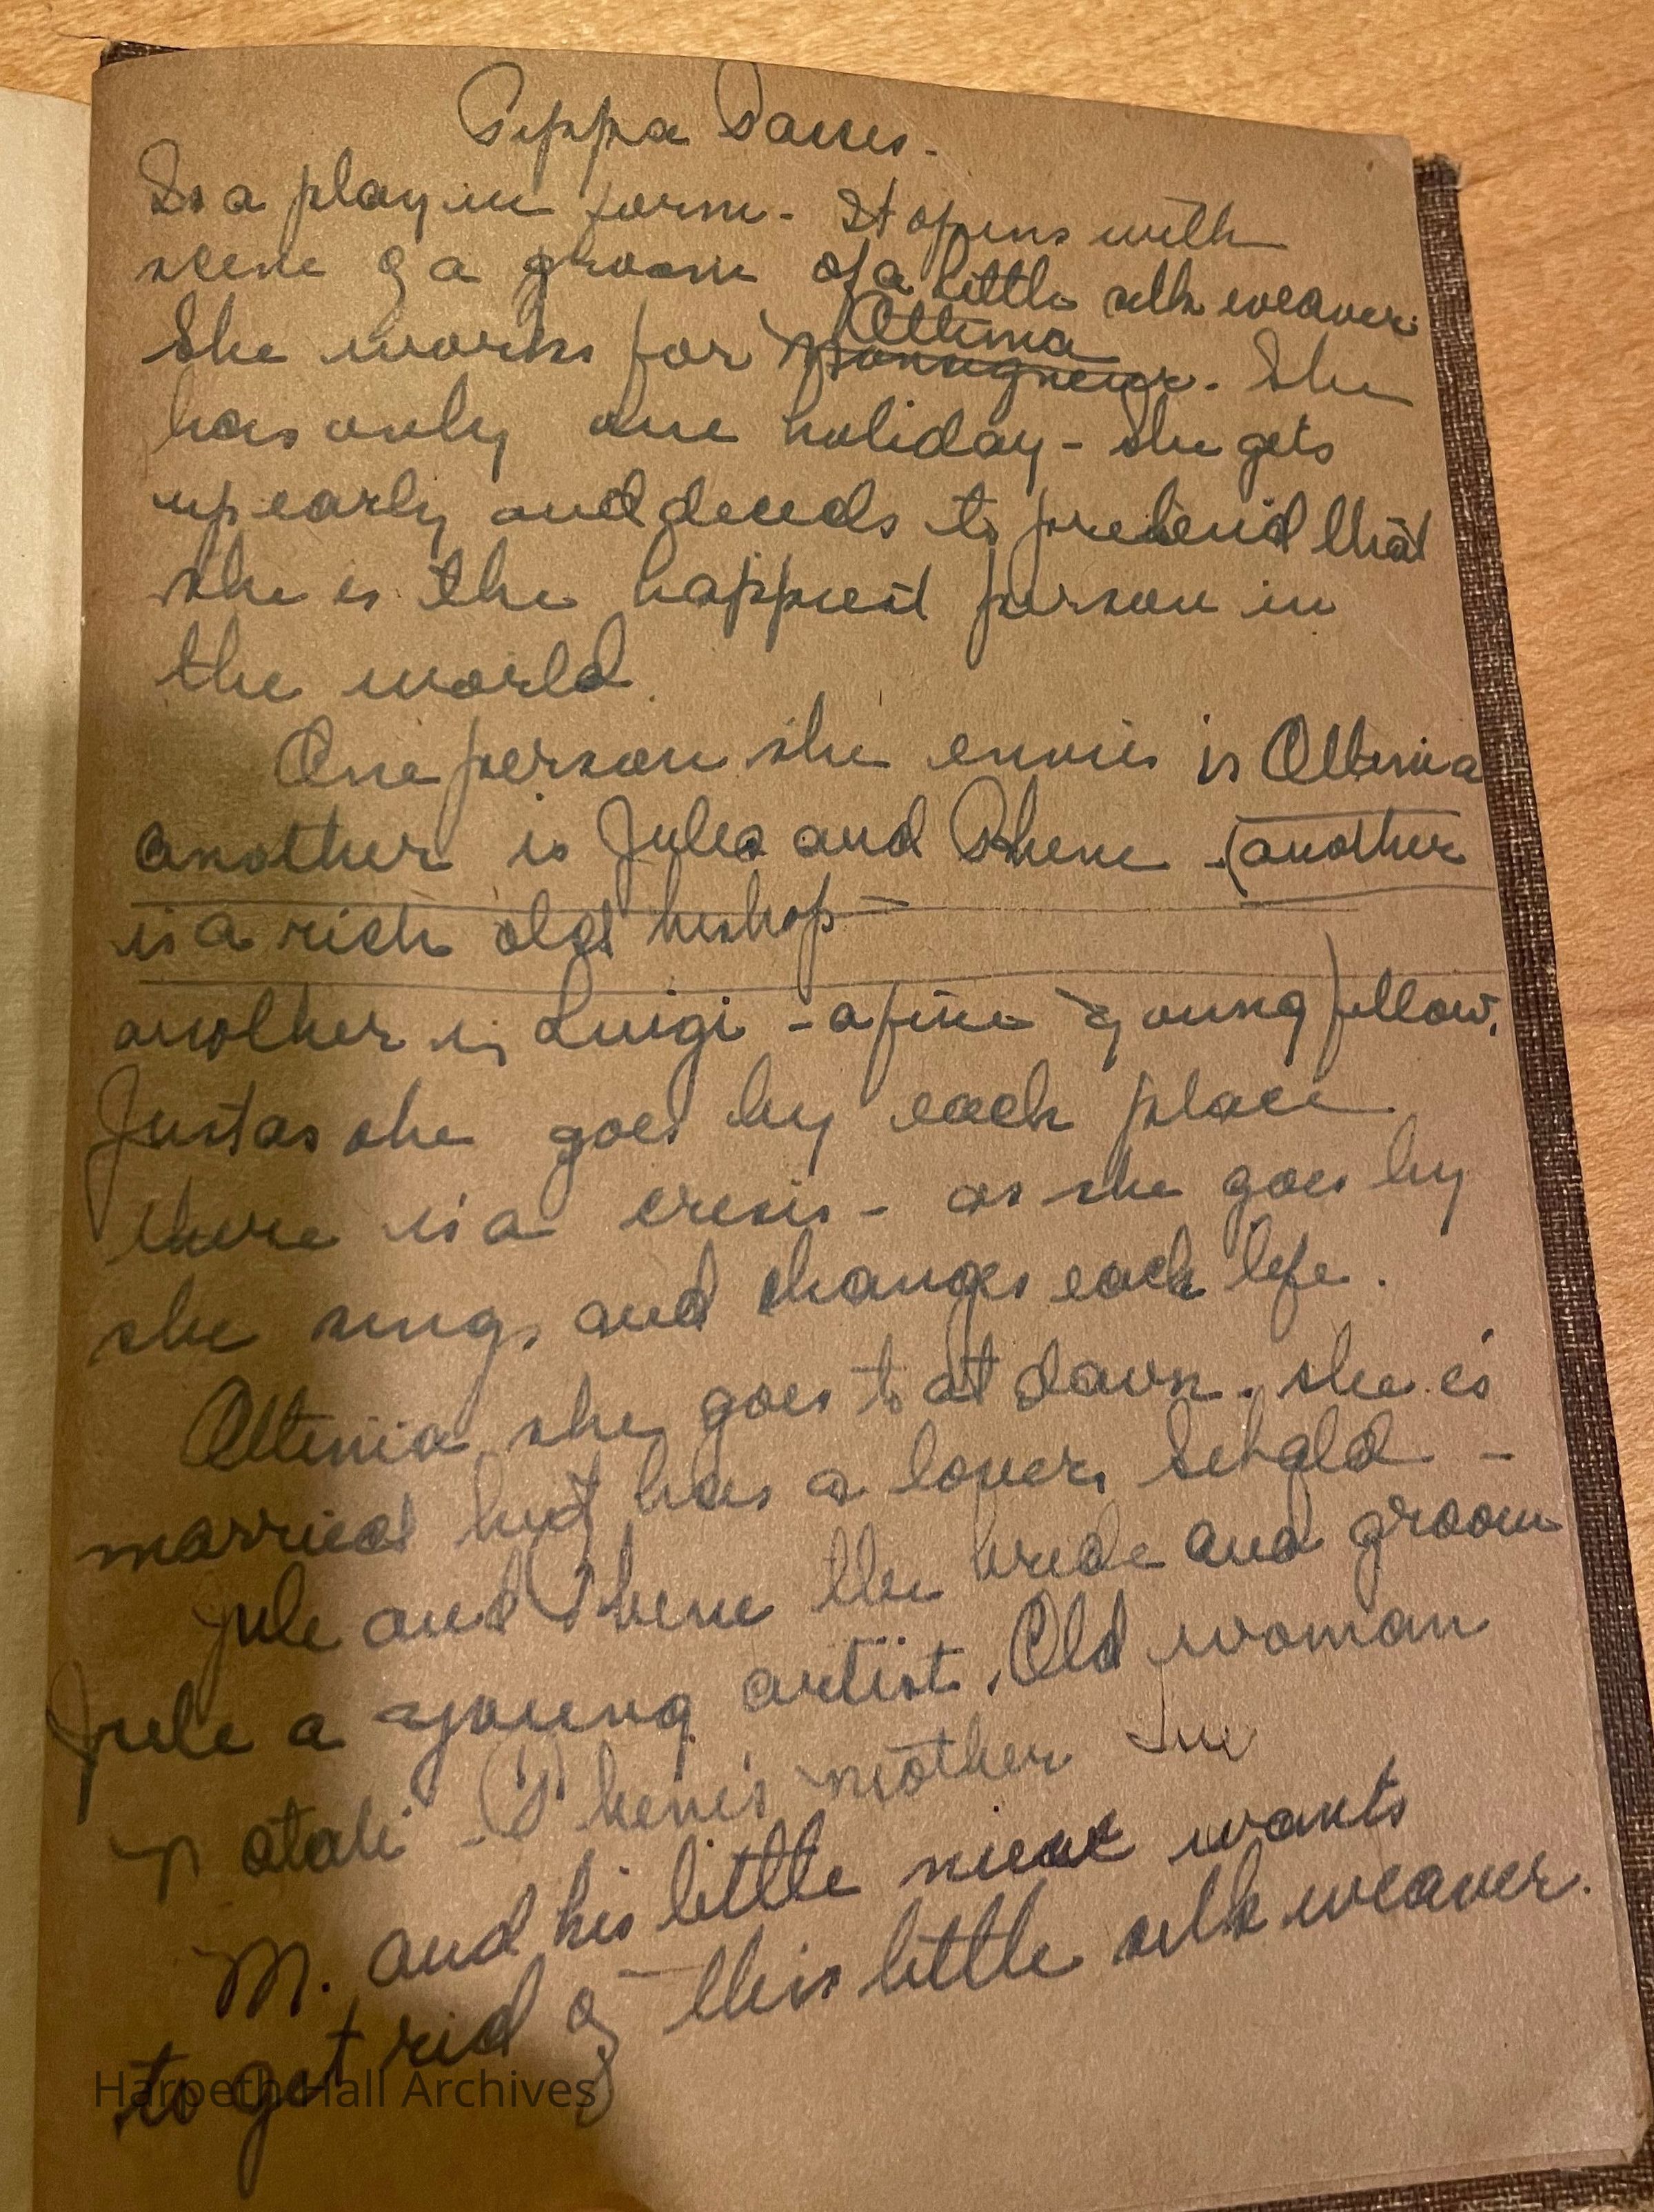 Pippa Passes.
Is a play in form - It opens with
scene of a groom of a little silk weaver
Ottima
She works for Monsigneur. She
has only one holiday - she gets
up early and deceds to pretend that
she is the happiest person in
the world.
One person she envies is Ottima
another is Jules and Phene - (another
is a rich old bishop -
another is Luigi - a fine young fellow.
Just as she goes by each place
there is a cresis - as she goes by
she sings and changes each life.
Ottima she goes to at dawn. she is
married but has a lover, Sebald -
Jule and Phene the bride and groom
Jule a young artist. Old woman
Natali - Phene's mother
M. and his little wants
to get rid of this little silk weaver.
Harpeth Hall Archives